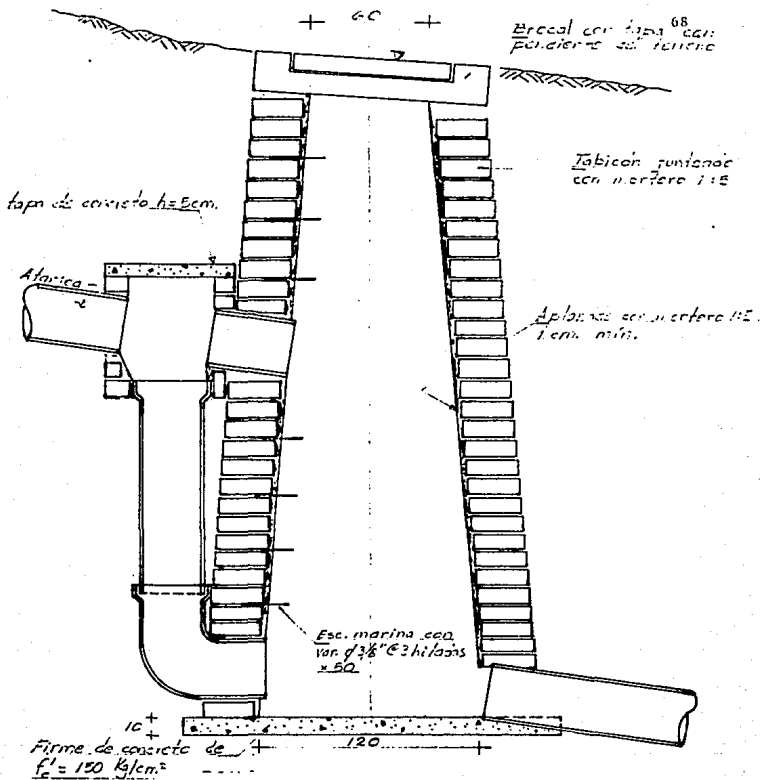 60
68
Brocal con tapa con
pendiente del terreno
Tabicón junteado
con mortero 1:5
tapa de concreto h=5cm.
Atarjea
Aplanado con mortero 1:5
1 cm. mín.
Esc. marina con
var. φ 3/8" @ 3 hiladas
x 50
10
120
Firme de concreto de
f'c = 150 Kg/cm²